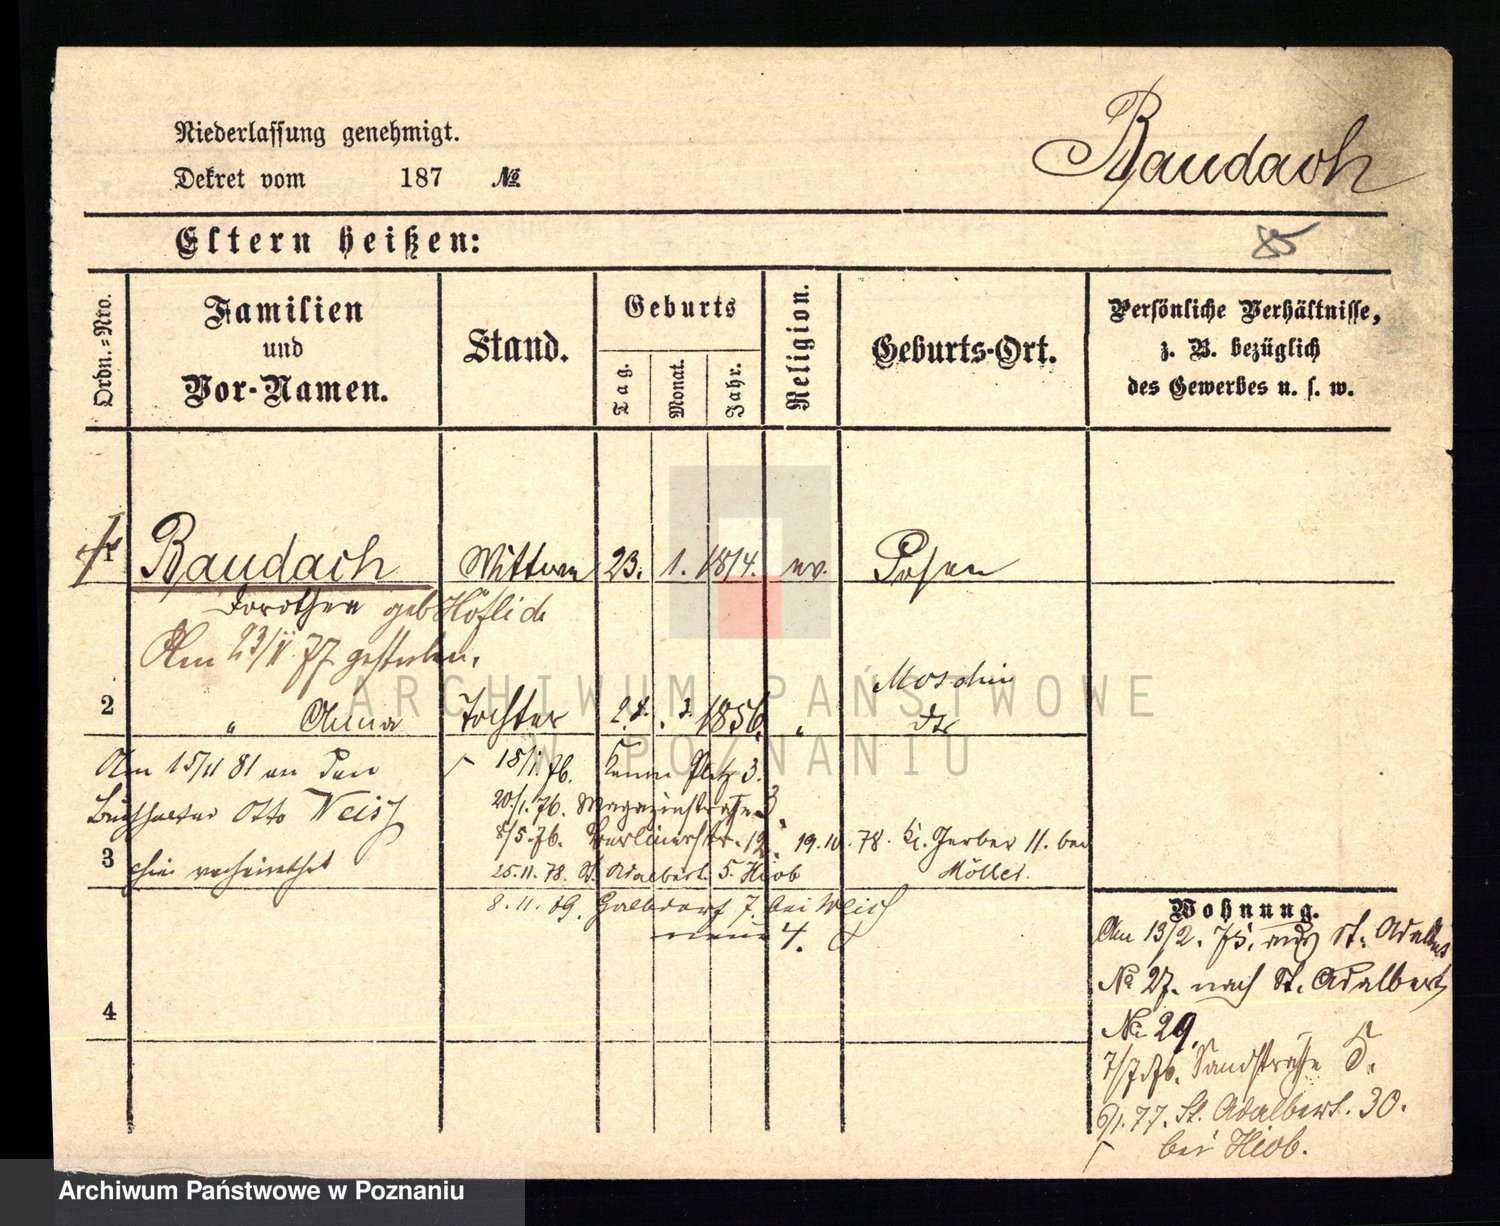 Niederlassung genehmigt.
Baudach
Dekret vom 187 №
Eltern heißen:
85
Ordn.-Nro.
Familien
und
Vor-Namen.
Stand.
Geburts
Tag.
Monat.
Jahr.
Religion.
Geburts-Ort.
Persönliche Verhältnisse,
z. B. bezüglich
des Gewerbes u. s. w.
1 Baudach Wittwe 23. 1. 1814. ev. Posen
Dorothea geb Höflich
Am 23/11 77 gestorben.
Moschin
2 " Anna Tochter 28. 3. 1856. "
Am 15/11 81 an den
18/1.76. Platz 3.
Buchhalter Otto Weis
20/1.76. Magazinstraße
8/5.76. Berlinerstr. 12. 19.10.78. Kl. Gerber 11. bei
3 hier verheirathet
25.11.78. St. Adalbert. 5. Hiob Möller.
8.11.79. Halbdorf 7. bei Weis
neue 4.
Wohnung.
Am 13/2. 75. aus St. Adalbert
№ 27. nach St. Adalbert
№ 29.
4
7/7.76. Sandstraße 5.
6/1.77. St. Adalbert. 30.
bei Hiob.
ARCHIWUM PAŃSTWOWE
W POZNANIU
Archiwum Państwowe w Poznaniu